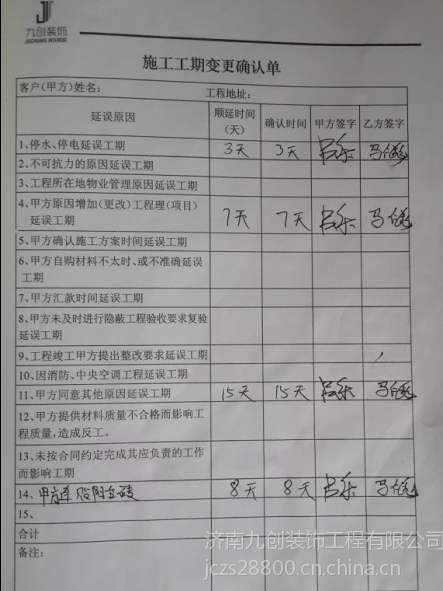 九创装饰
JIUCHUANG INTERIOR
施工工期变更确认单
客户(甲方)姓名: 工程地址:
延误原因 顺延时间(天) 确认时间 甲方签字 乙方签字
1、停水、停电延误工期 3天 3天
2、不可抗力的原因延误工期
3、工程所在地物业管理原因延误工期
4、甲方原因增加(更改)工程理(项目)
延误工期 7天 7天
5、甲方确认施工方案时间延误工期
6、甲方自购材料不太时、或不准确延误
工期
7、甲方汇款时间延误工期
8、甲方未及时进行隐蔽工程验收要求复验
延误工期
9、工程竣工甲方提出整改要求延误工期
10、因消防、中央空调工程延误工期
11、甲方同意其他原因延误工期 15天 15天
12、甲方提供材料质量不合格而影响工
程质量,造成反工。
13、未按合同约定完成其应负责的工作
而影响工期
14、甲方 8天 8天
15、
合计
备注:
济南九创装饰工程有限公司
jczs28800.cn.china.cn